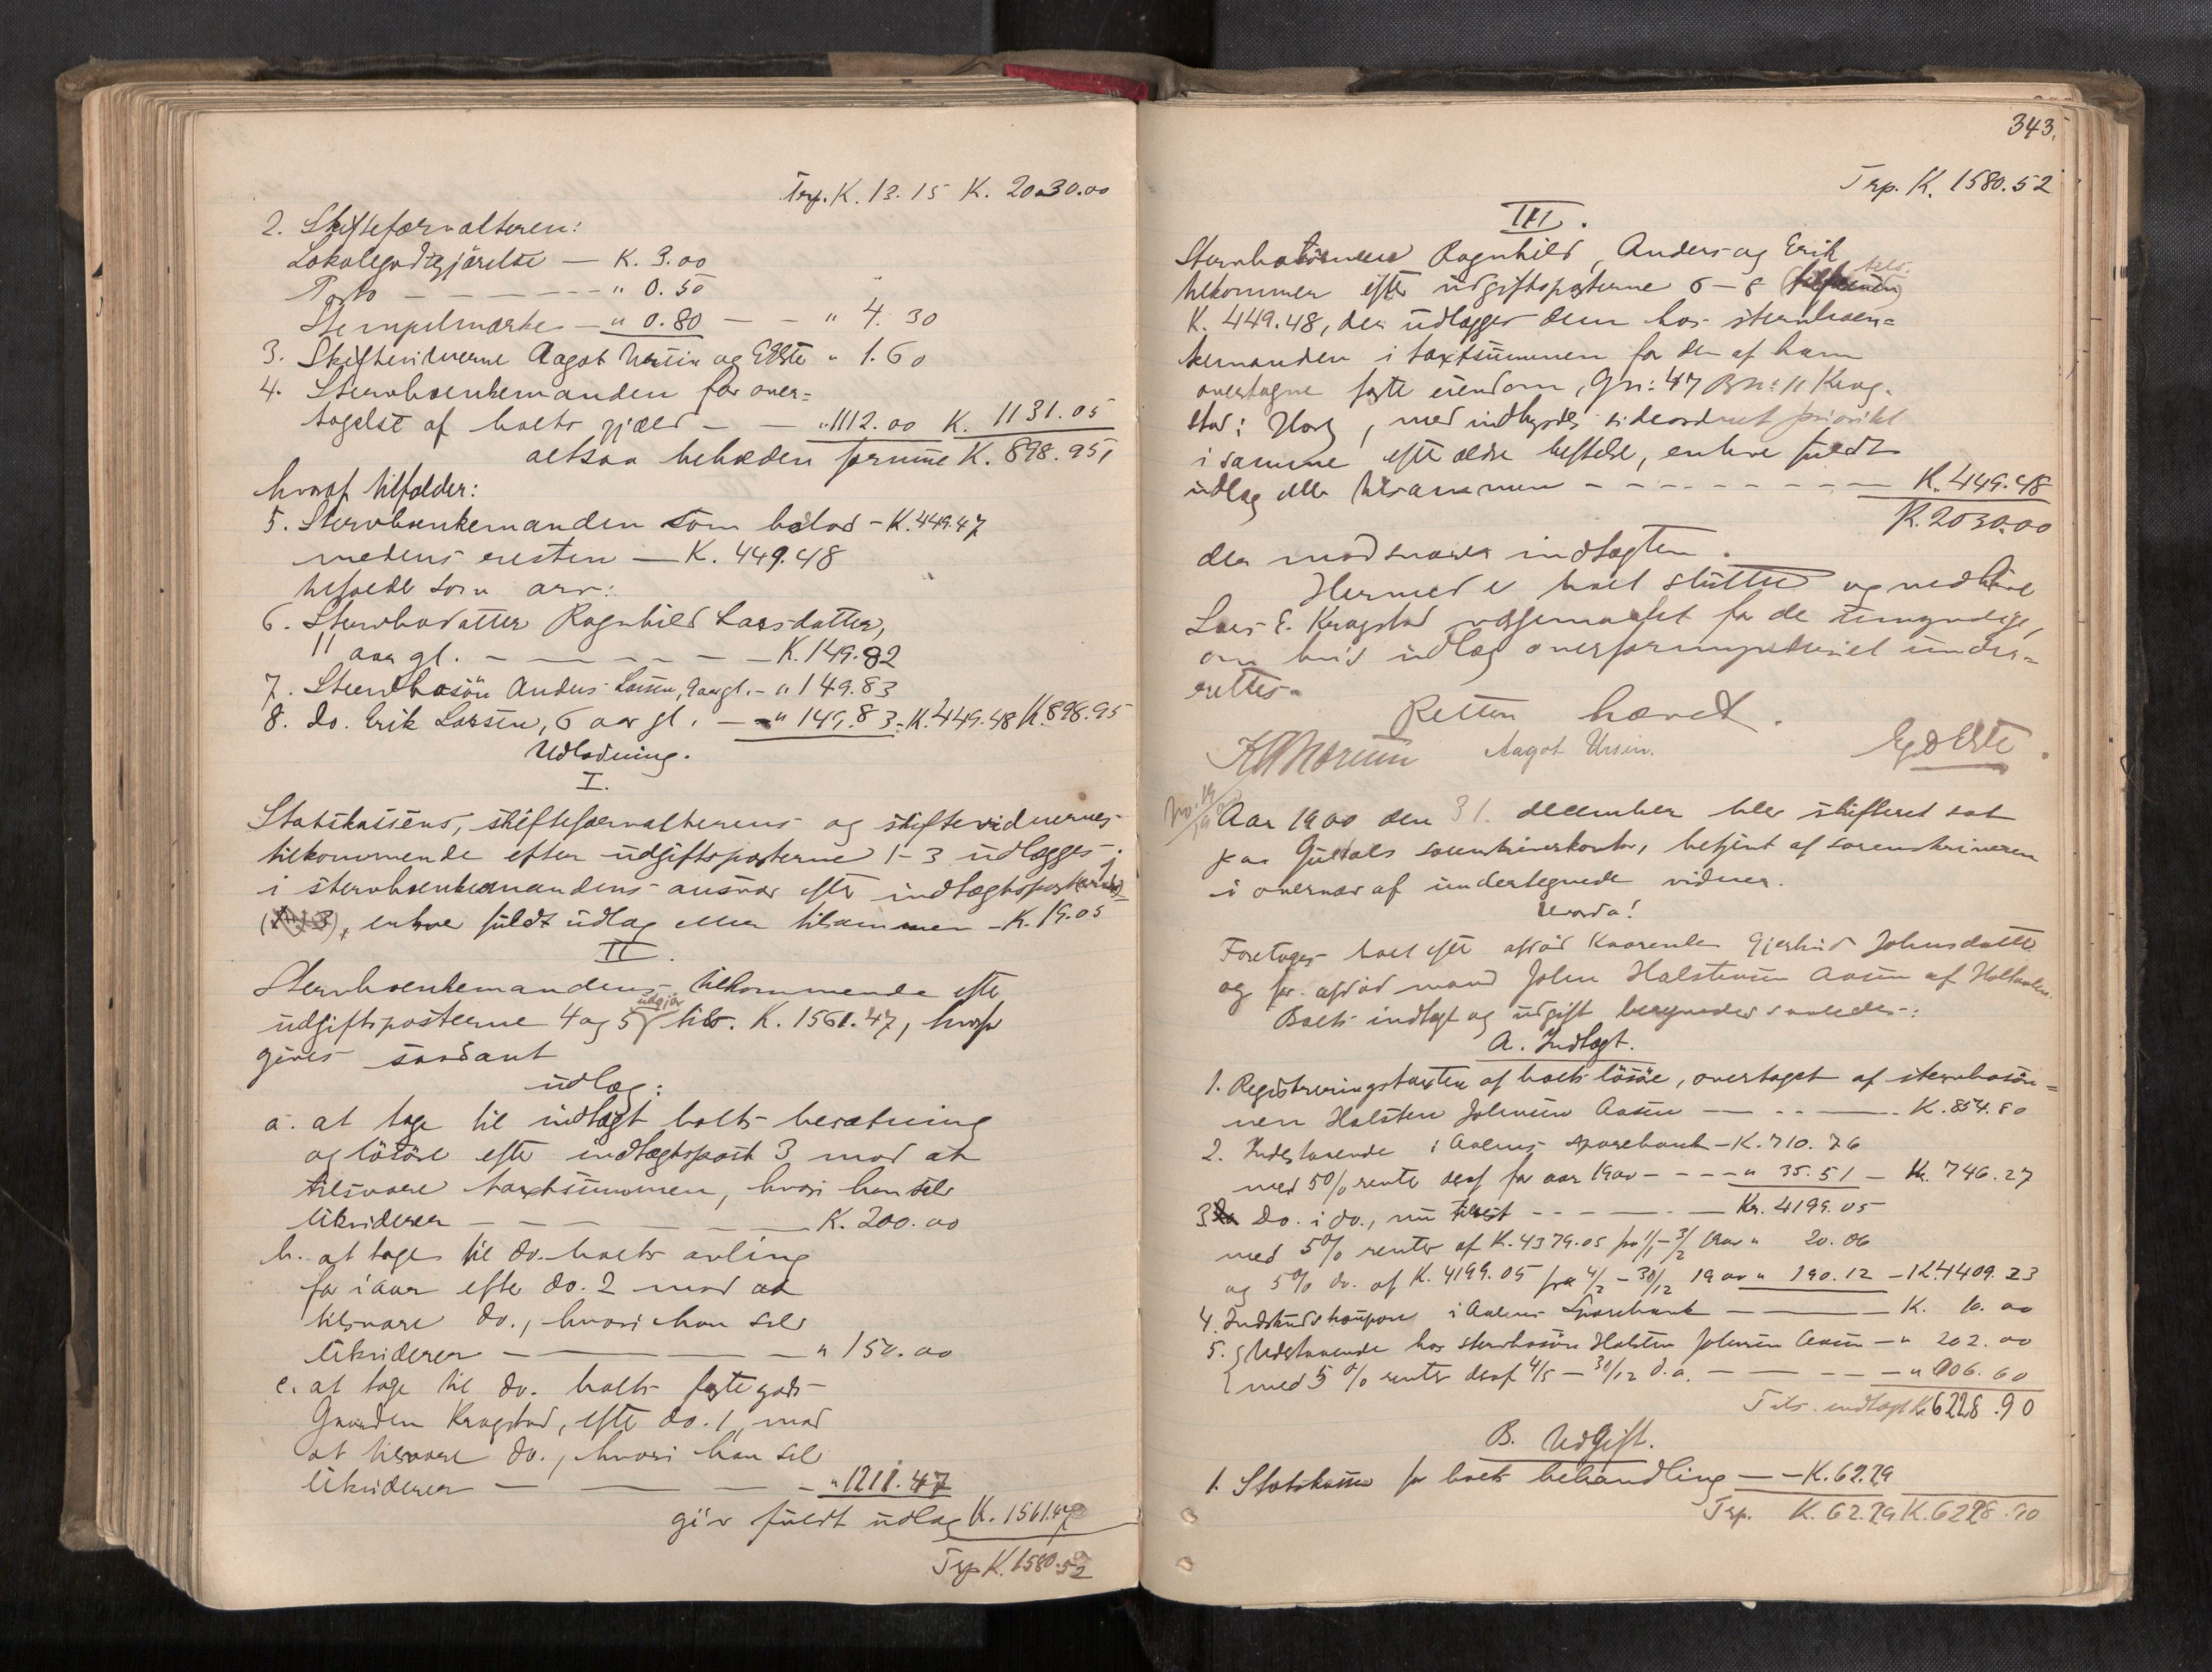 Trp. K. 13.15 K. 2030.00
2. Skifteforvalteren:
Lokalegodtgjörelse — K. 3.00
Porto — — — — " 0.50
Stempelmærke — " 0.80 — — " 4.30
3. Skiftevidnerne Aagot Ursin og E Øste " 1.60
4. Stervboenkemanden for over=
tagelse af boets gjæld — — " 1112.00 K. 1131.05
altsaa beholden formue K. 898.95,
hvoraf tilfalder:
5. Stervboenkemanden som boslod – K. 449.47
medens resten — K. 449.48
tilfalder som arv:
6. Stervbodatter Ragnhild Larsdatter,
11 aar gl. — — — — — K. 149.82
7. Stervbosön Anders Larsen, 9 aar gl. – " 149.83
8. do. Erik Larsen, 6 aar gl. — " 149.83 – K. 449.48 K. 898.95
Udlodning.
I.
Statskassens, skifteforvalterens og skiftevidnernes
tilkommende efter udgiftsposterne 1–3 udlægges
i stervboenkemandens ansvar efter indtægtsposterne
, enhver fuldt udlag eller tilsammen – K. 19.05
II.
Stervboenkemandens tilkommende efter
udgiftsposterne 4 og 5 udgjör tils. K. 1561.47, hvorfor
gives saadant
udlæg:
a. at tage til indtægt boets besætning
og lösöre efter indtægtspost 3 mod at
tilsvare taxtsummen, hvori han selv
likviderer — — — — — K. 200.00
b. at tage til do. boets avling
for iaar efter do. 2 mod at
tilsvare do., hvori han selv
likviderer — — — — " 150.00
c. at tage til do. boets faste gods
Gaarden Kragstad, efter do. 1, mod
at tilsvare do., hvori han selv
likviderer — — — — " 1211.47
gi'r fuldt udlag K. 1561.47
Trp K. 1580.52
343.
Trp. K. 1580.52
III.
Stervbobörnene Ragnhild, Anders og Erik
tilkommer efter udgiftsposterne 6–8
K. 449.48, der udlægges dem hos stervboen=
kemanden i taxtsummen for den af ham
overtagne faste eiendom, Gn: 47 Bn: 11 Krag-
stad i Horg, med indbyrdes sideordnet prioritet
i samme efter ældre heftelse, enhver fuldt
udlag eller tilsammen — — — — — K. 449.48
K. 2030.00
der modsvarer indtægten.
Hermed er boet sluttet og vedblive
Lars E. Kragstad værgemaalet for de umyndige,
om hvis udlæg overformynderiet under=
rettes.
Retten hævet.
Aagot Ursin. E Øste.
Aar 1900 den 31. december blev skifteret sat
paa Guldals sorenskriverkontor, betjent af sorenskriveren
i overvær af undertegnede vidner.
Hvorda!
Foretages boet efter afdöd kaarenke Gjertrud Johnsdatter
og för afdöd mand John Halstensen Aasen af Holtaalen.
Boets indtægt og udgift beregnedes saaledes:
A. Indtægt.
1. Registreringstaxten af boets lösöre, overtaget af stervbosön=
nen Halsten Johnsen Aasen — — — K. 854.80
2. Indestaaende i Aalens sparebank – K. 710.76
med 5% rente deraf for aar 1900 – – – " 35.51 – Kr. 746.27
3. Do. i do., nu tilrest — — — Kr. 4199.05
med 5% renter af K. 4379.05 fra 1/1–3/2 1900 " 20.06
og 5% do. af K. 4199.05 fra 4/2–30/12 1900 " 190.12 – K. 4409.23
4. Indskudskoupon i Aalens Sparebank — — K. 10.00
5. Udestaaende hos stervbosön Halsten Johnsen Aasen – " 202.00
med 5% renter deraf 4/5 – 30/12 d.a. — — — " 006.60
Tils. indtægt K. 6228.90
B. Udgift.
1. Statskassen for boets behandling — – K. 62.29
Trp. K. 62.29 K. 6228.90